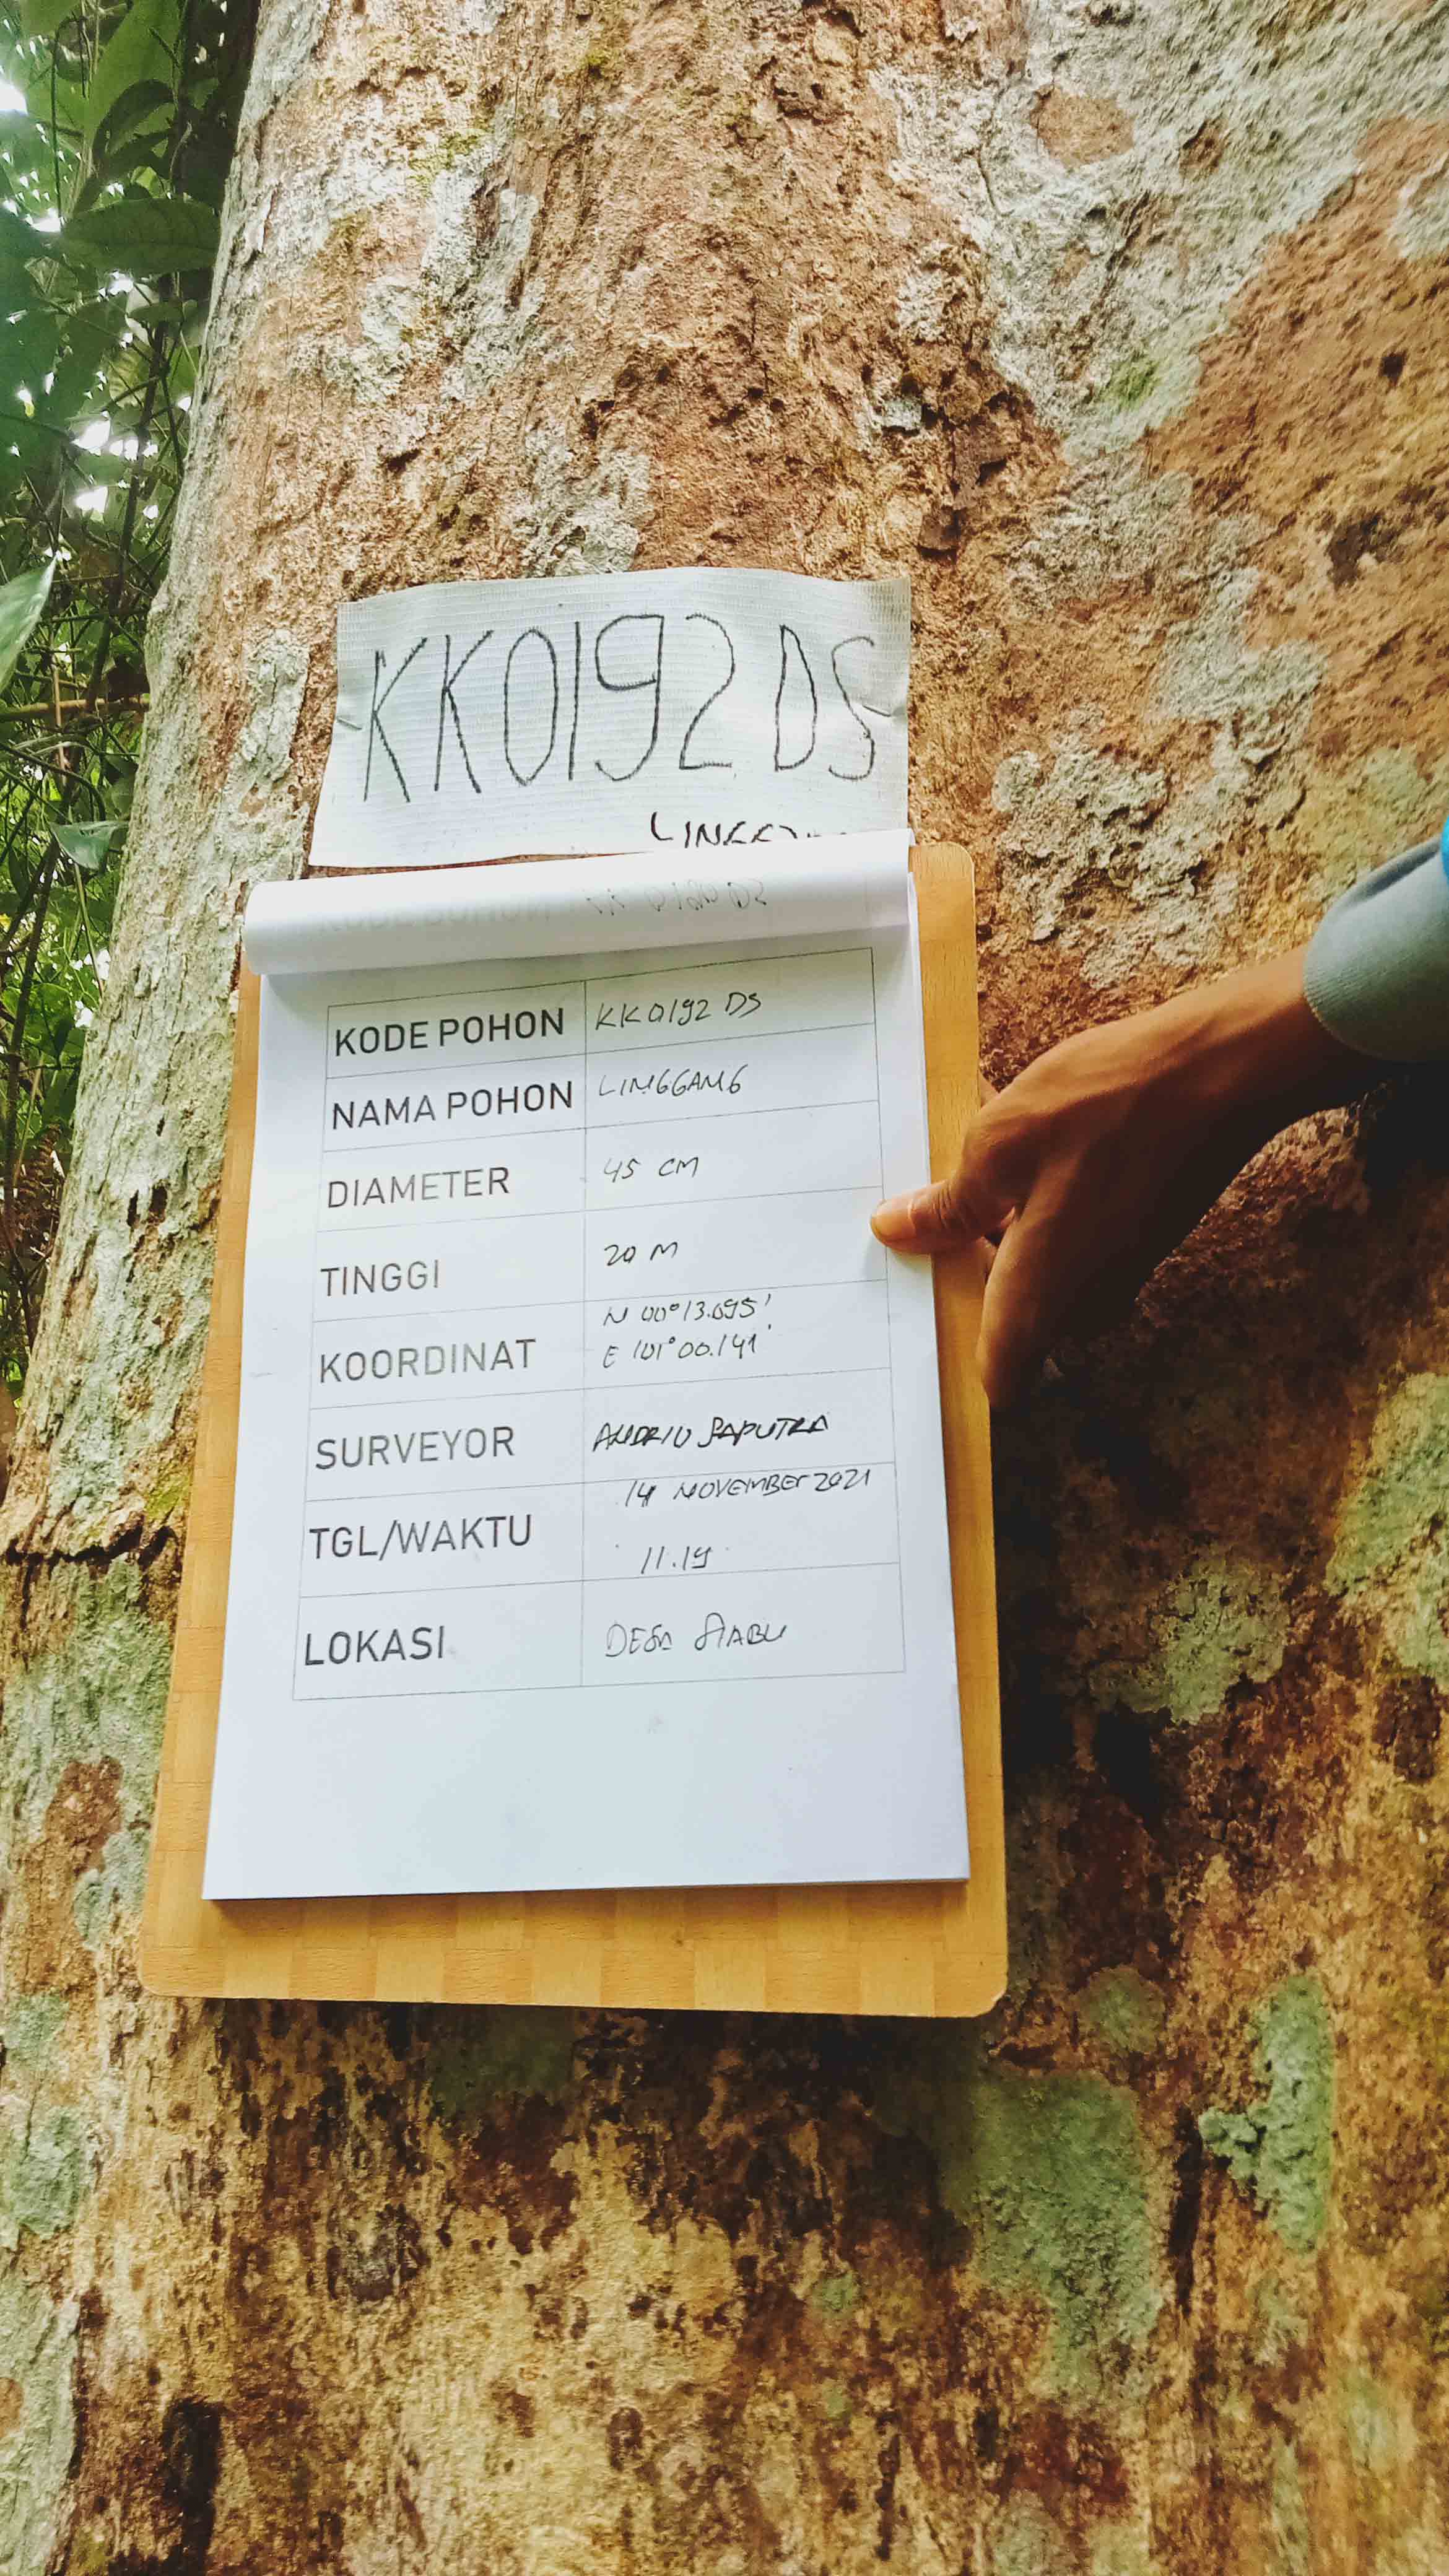 KK0192 DS
KODE POHON KK0192 DS
NAMA POHON LINGGANG
DIAMETER 45 CM
TINGGI 20 M
KOORDINAT N 00°13.695'
E 101°00.141'
SURVEYOR ANDRIO SAPUTRA
TGL/WAKTU 14 NOVEMBER 2021
11.19
LOKASI DESA SIABU